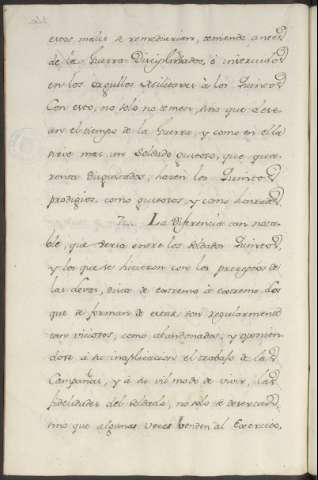 estos males se remediarian, teniendo antes
de la Guerra Disciplinados, è instruidos
en los orgullos Militares à los Quintos
Con esto, no solo no temen, sino que desean
el tiempo de la Guerra, y como en ella
sirve mas un Soldado quieto, que quarenta
disgustados, haren los Quintos
prodigios, como quietos, y como honrados.
7 La diferencia tan notable,
que seria entre los soldados Quintos,
y los que se hicieron con los preceptos de
las Levas, dista de extremo à extremo. Los
que se forman de estas, son regularmente
tan viciosos, como abandonados, y oponiendose
à su inaplicacion el trabajo de las
Campañas, y à su vil modo de vivir, las
fidelidades del soldado, no solo se desertan,
sino que algunas veces venden al Exercito,